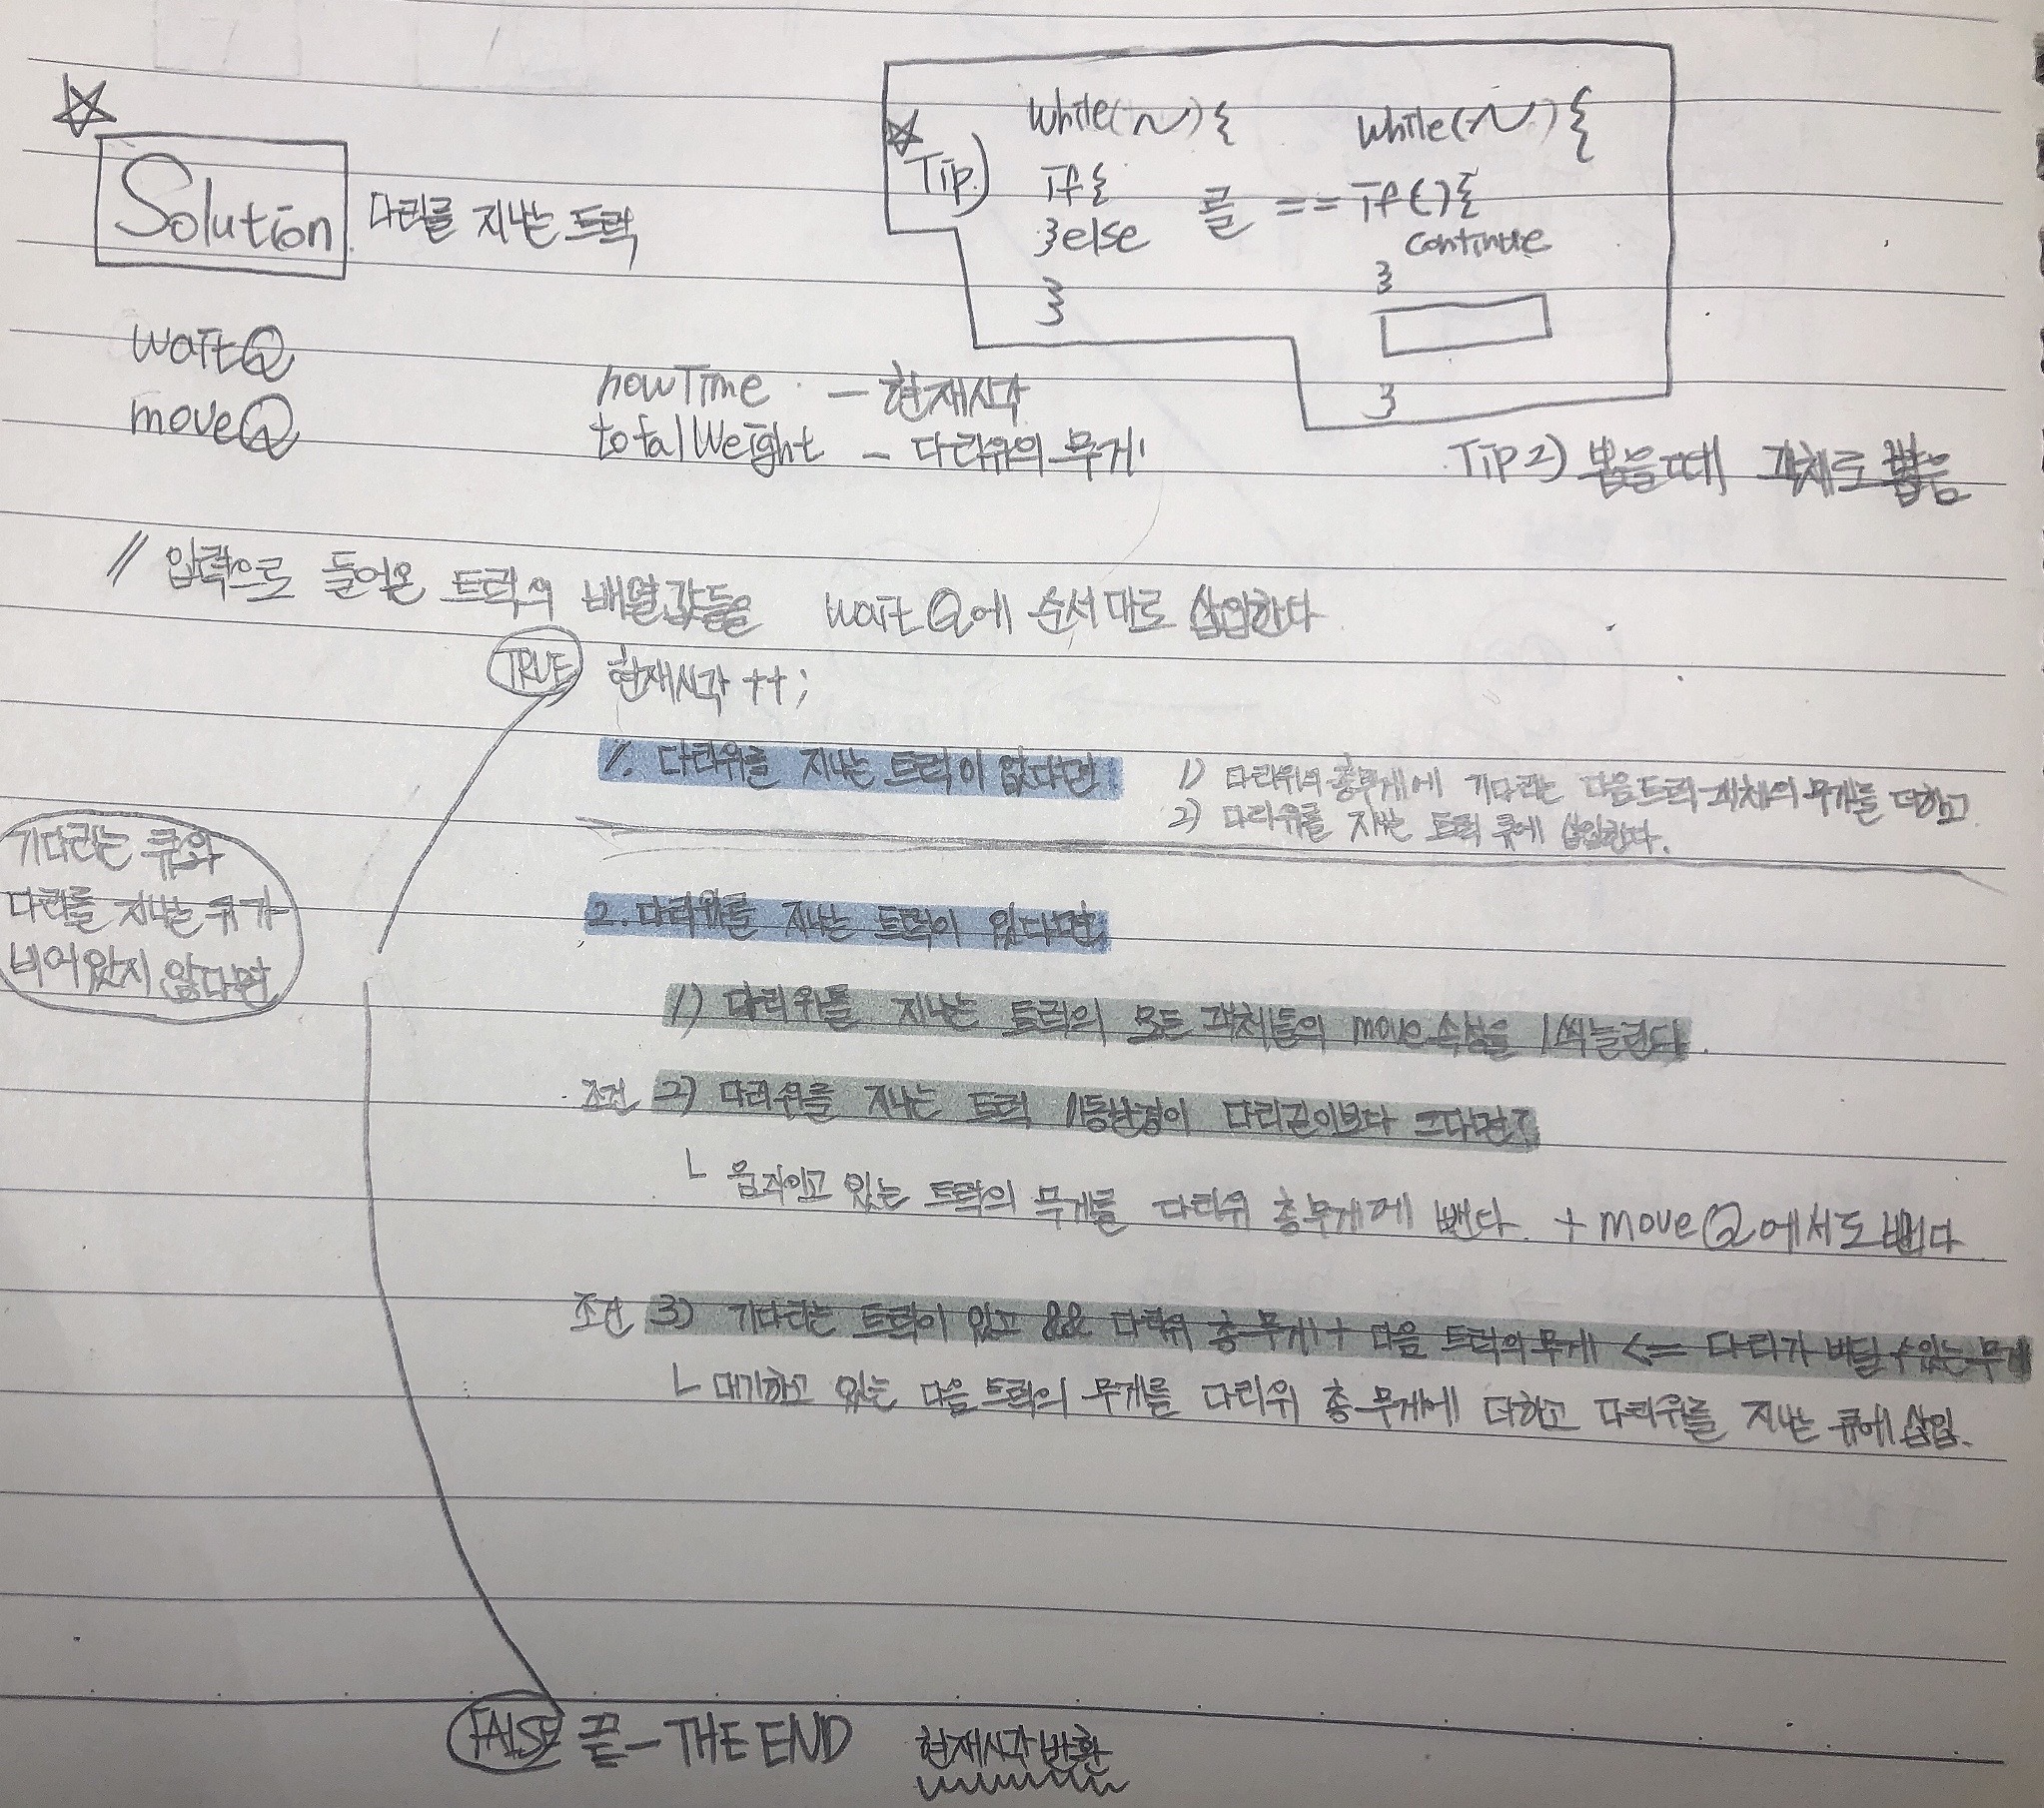 Solution 다리를 지나는 트럭
Tip)
while(~){
if{
}else
}
끝 ==
while(~){
if(){
continue
}
}
waitQ
moveQ
nowTime - 현재시각
totalWeight - 다리위의 무게
Tip2) 뽑을때 객체로 뽑음
// 입력으로 들어온 트럭의 배열값들을 waitQ에 순서대로 삽입한다
TRUE 현재시각 ++;
1. 다리위를 지나는 트럭이 없다면
1) 다리위의 총무게에 기다리는 다음트럭 객체의 무게를 더하고
2) 다리위를 지나는 트럭 큐에 삽입한다.
기다리는 큐와
다리를 지나는 큐가
비어있지 않다면
2. 다리위를 지나는 트럭이 있다면
1) 다리위를 지나는 트럭의 모든 객체들의 move속성을 1씩늘린다.
조건 2) 다리위를 지나는 트럭 이동반경이 다리길이보다 크다면?
ㄴ 움직이고 있는 트럭의 무게를 다리위 총무게에 뺀다. + moveQ에서도 뺀다
조건 3) 기다리는 트럭이 있고 && 다리위 총무게 + 다음 트럭의무게 <= 다리가 버틸수있는무게
ㄴ 대기하고 있는 다음트럭의 무게를 다리위 총무게에 더하고 다리위를 지나는 큐에 삽입.
FALSE 끝 - THE END 현재시각 반환